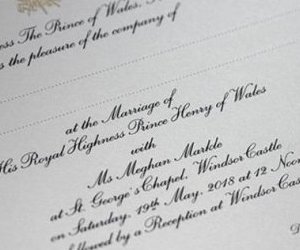 ess The Prince of Wales,
s the pleasure of the company of
at the Marriage of
His Royal Highness Prince Henry of Wales
with
Ms Meghan Markle
at St. George's Chapel, Windsor Castle
on Saturday, 19th May, 2018 at 12 Noon
followed by a Reception at Windsor Cas